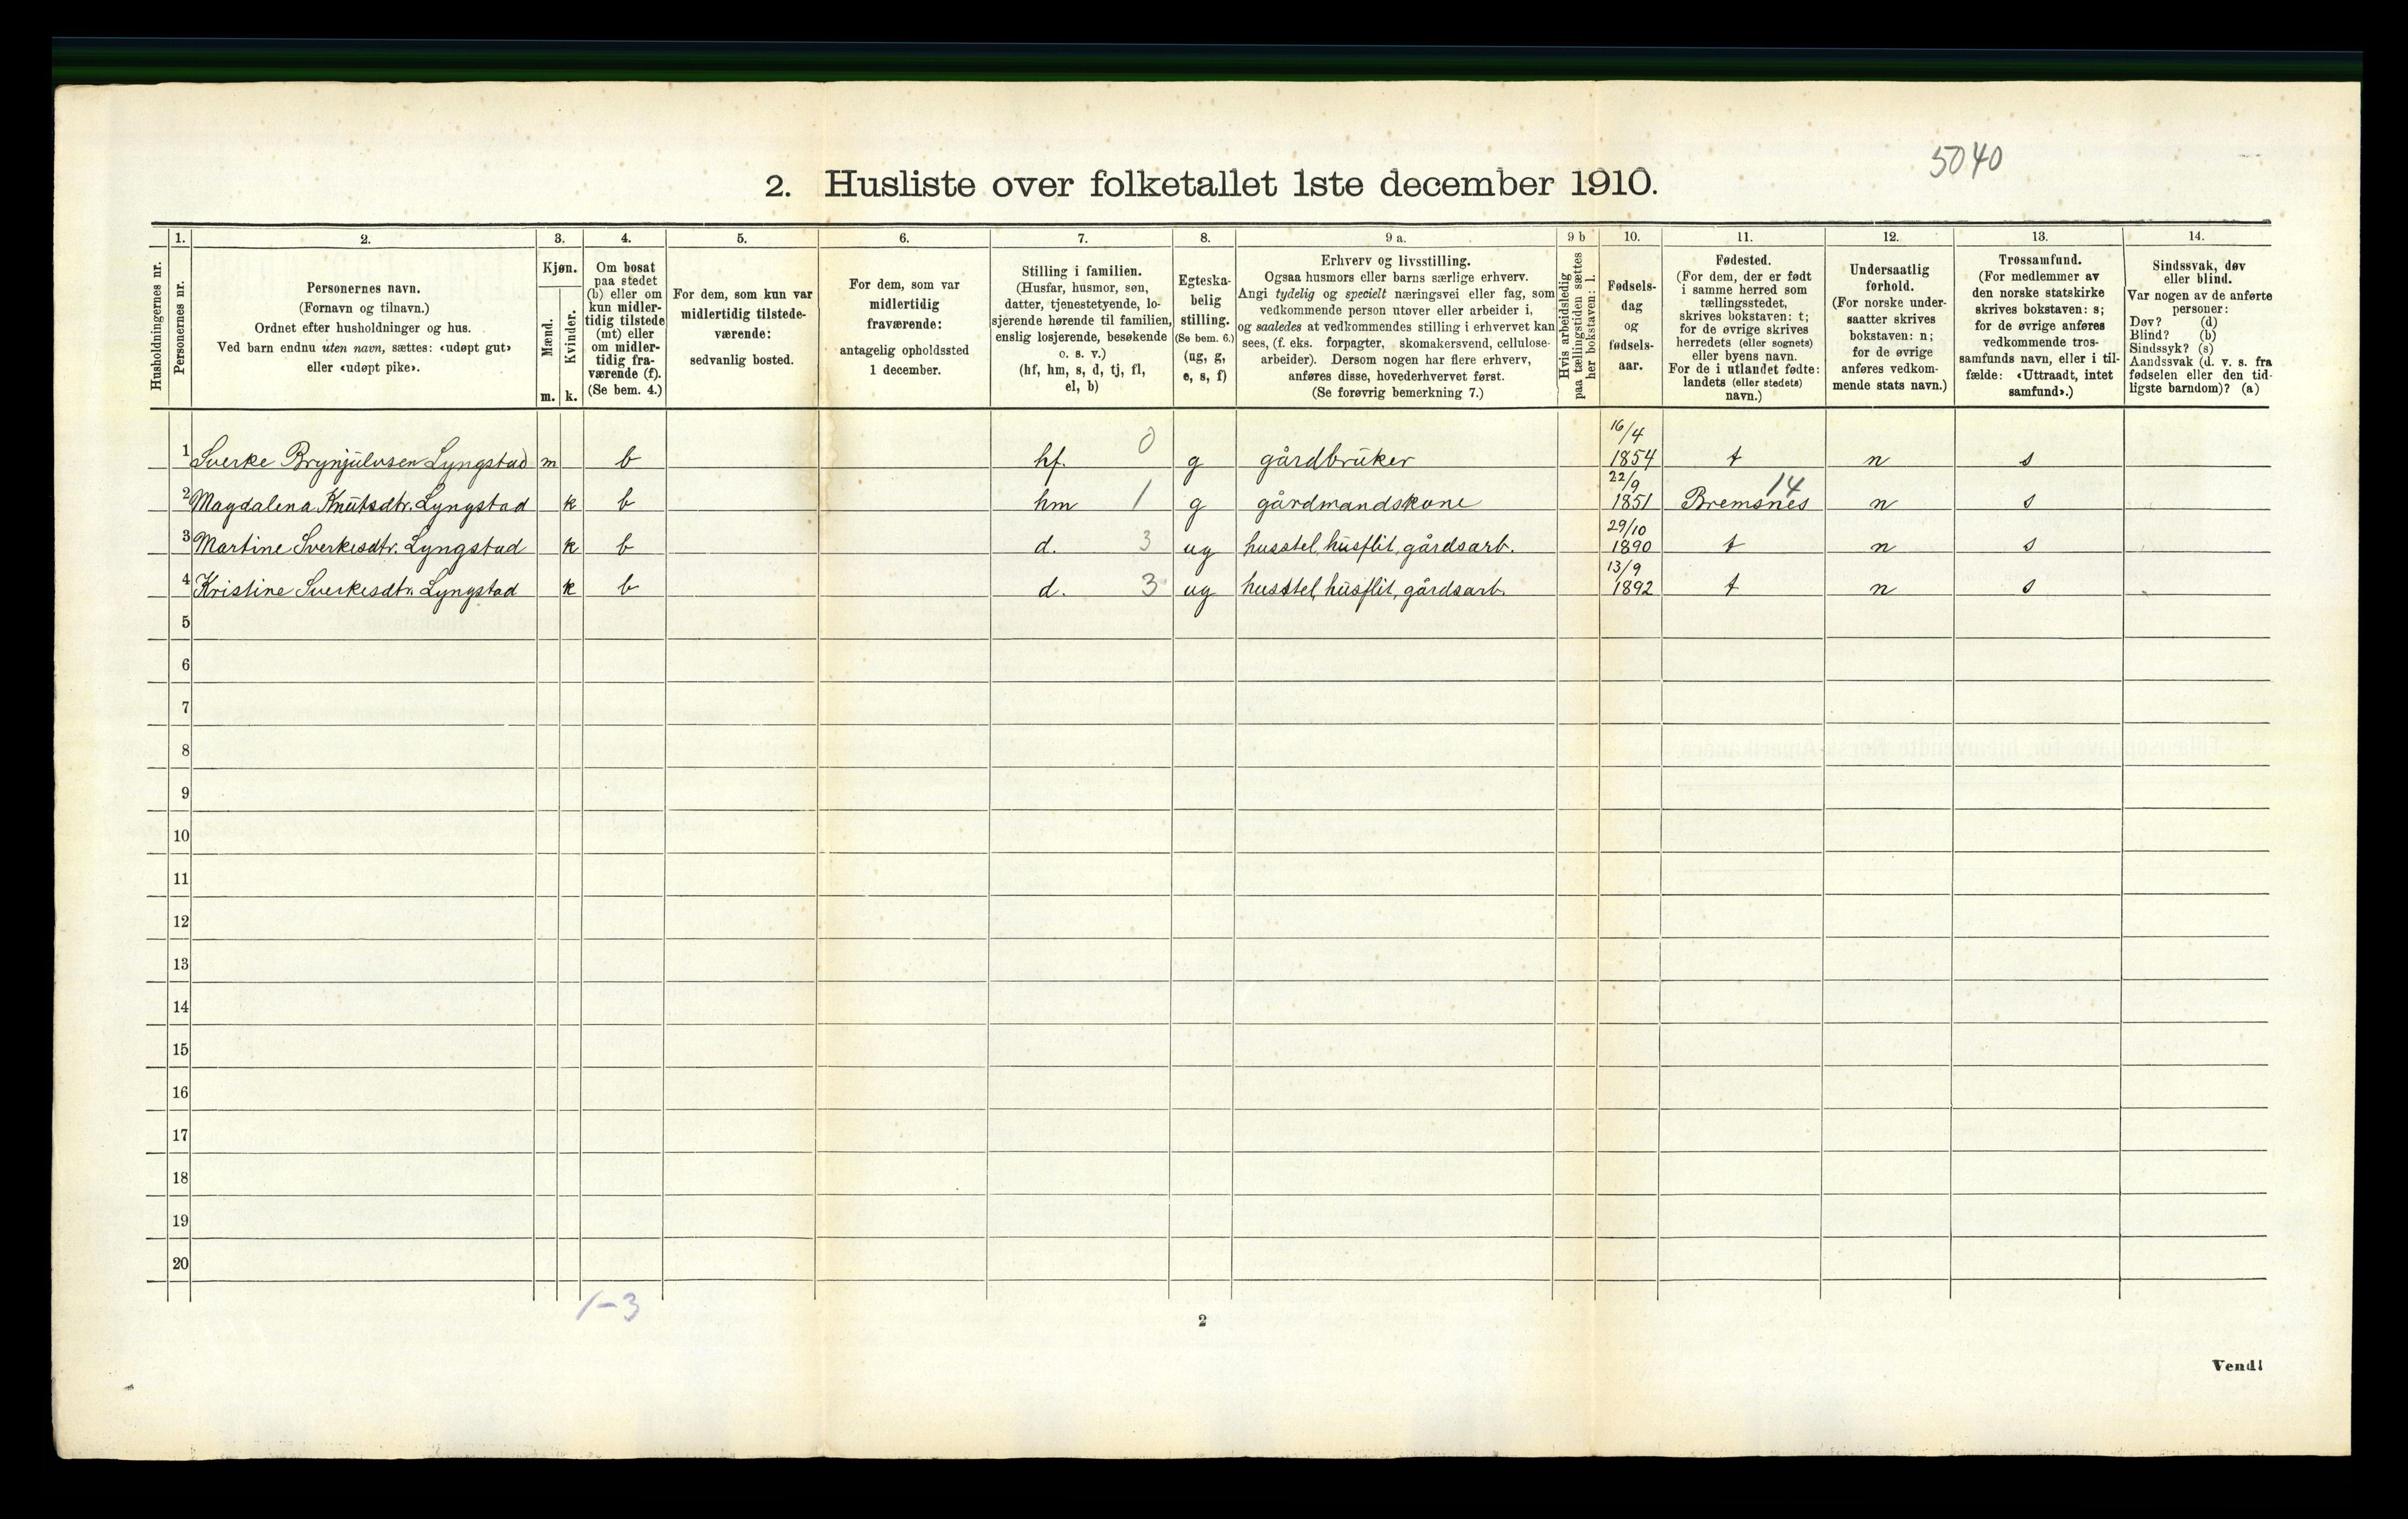 5040
2. Husliste over folketallet 1ste december 1910.
Husholdningernes nr.
1.
Personernes nr.
2.
Personernes navn.
(Fornavn og tilnavn.)
Ordnet efter husholdninger og hus.
Ved barn endnu uten navn, sættes: «udøpt gut»
eller «udøpt pike».
3.
Kjøn.
Mænd.
Kvinder.
m.
k.
4.
Om bosat
paa stedet
(b) eller om
kun midler-
tidig tilstede
(mt) eller
om midler-
tidig fra-
værende (f).
(Se bem. 4.)
5.
For dem, som kun var
midlertidig tilstede-
værende:
sedvanlig bosted.
6.
For dem, som var
midlertidig
fraværende:
antagelig opholdssted
1 december.
7.
Stilling i familien.
(Husfar, husmor, søn,
datter, tjenestetyende, lo-
sjerende hørende til familien,
enslig losjerende, besøkende
o. s. v.)
(hf, hm, s, d, tj, fl,
el, b)
8.
Egteska-
belig
stilling.
(Se bem. 6.)
(ug, g,
e, s, f)
9 a.
Erhverv og livsstilling.
Ogsaa husmors eller barns særlige erhverv.
Angi tydelig og specielt næringsvei eller fag, som
vedkommende person utøver eller arbeider i,
og saaledes at vedkommendes stilling i erhvervet kan
sees, (f. eks. forpagter, skomakersvend, cellulose-
arbeider). Dersom nogen har flere erhverv,
anføres disse, hovederhvervet først.
(Se forøvrig bemerkning 7.)
9 b
Hvis arbeidsledig
paa tællingstiden sættes
her bokstaven: l.
10.
Fødsels-
dag
og
fødsels-
aar.
11.
Fødested.
(For dem, der er født
i samme herred som
tællingsstedet,
skrives bokstaven: t;
for de øvrige skrives
herredets (eller sognets)
eller byens navn.
For de i utlandet fødte:
landets (eller stedets)
navn.)
12.
Undersaatlig
forhold.
(For norske under-
saatter skrives
bokstaven: n;
for de øvrige
anføres vedkom-
mende stats navn.)
13.
Trossamfund.
(For medlemmer av
den norske statskirke
skrives bokstaven: s;
for de øvrige anføres
vedkommende tros-
samfunds navn, eller i til-
fælde: «Uttraadt, intet
samfund».)
14.
Sindssvak, døv
eller blind.
Var nogen av de anførte
personer:
Døv? (d)
Blind? (b)
Sindssyk? (s)
Aandssvak (d. v. s. fra
fødselen eller den tid-
ligste barndom)? (a)
1 Sverke Brynjulvsen Lyngstad m b hf. 0 g gårdbrüker 16/4 1854 t n s
2 Magdalena Knütsdtr. Lyngstad k b hm 1 g gårdmandskone 22/9 1851 Bremsnes 14 n s
3 Martine Sverkesdtr. Lyngstad k b d. 3 ug husstel, husflit, gårdsarb. 29/10 1890 t n s
4 Kristine Sverkesdtr. Lyngstad k b d. 3 ug husstel, husflit, gårdsarb. 13/9 1892 t n s
5
6
7
8
9
10
11
12
13
14
15
16
17
18
19
20
1-3
2
Vend!